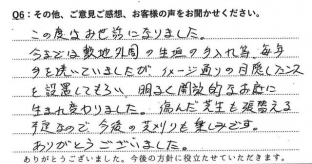 Q6：その他、ご意見ご感想、お客様の声をお聞かせください。
この度はお世話になりました。
今までは敷地外周の生垣の手入れ等、毎年
手を焼いていましたが、イメージ通りの目隠しフェンス
を設置してもらい、明るく開放的なお庭に
生まれ変わりました。傷んだ芝生も張替える
予定なので、今後の芝刈りも楽しみです。
ありがとうございました。
ありがとうございました。今後の方針に役立たせていただきます。